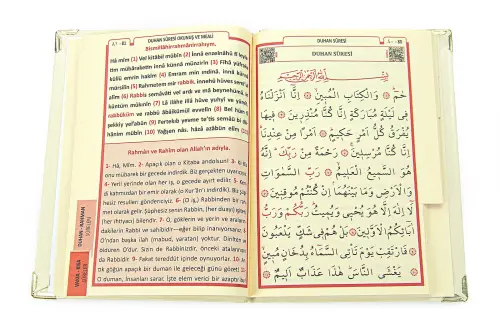 DUHAN SÛRESİ OKUNUŞ VE MEALİ
Bismillâhirrahmânirrahîym.
Hâ mîm (1) Vel kitâbil mübîn (2) İnnâ enzelnâhü fî leyle
tim mübâraketin innâ künnâ münzirîn (3) Fîhâ yüfraku
küllü emrin hakîm (4) Emram min ındinâ, innâ künnâ
mürsilîn (5) Rahmetem mir rabbik, innehû hüves semîul
alîm (6) Rabbis semâvâti vel ardı ve mâ beynehümâ, in
küntüm mûkınîn (7) Lâ ilâhe illâ hüve yuhyî ve yümît,
rabbüküm ve rabbü âbâikümül evvelîn (8) Bel hüm fî
şekkiy yel'abûn (9) Fertekıb yevme te'tis semâü bi du
hânim mübîn (10) Yağşen nâs, hâzâ azâbün elîm (11)
Rahmân ve Rahîm olan Allah'ın adıyla.
1- Hâ, Mîm. 2- Apaçık olan o Kitaba andolsun! 3- Biz
onu mübarek bir gecede indirdik. Biz gerçekten uyarıyoruz.
4- Yerli yerinde olan her iş, o gecede ayırt edilir. 5- Ken
di katımızdan bir emir olarak (o Kur'an'ı indirdik). Biz Pey
gamberler göndermekteyiz. 6- (O iş,) Rabbinden bir rah
met olarak gelir. Şüphesiz senin Rabbin, (her duayı) işiten,
(her ihtiyacı) bilendir. 7- O, göklerin ve yerin ve araların
dakilerin Rabbi ve sahibidir—eğer bilip inanıyorsanız. 8-
O'ndan başka ilah (mabud, yaratan) yoktur. Dirilten ve
öldüren O'dur. Sizin de Rabbinizdir, önceki atalarınızın
da Rabbidir. 9- Fakat tereddüt içinde oynuyorlar. 10- Ar
tık göğün apaçık bir duman ile geleceği günü gözet! 11-
O duman, insanları sarar. İşte elem verici bir azaptır bu.
DUHAN - RAHMAN
DUHAN SÛRESİ
DUHAN SÛRESİ
بِسْمِ اللّٰهِ الرَّحْمٰنِ الرَّحِيمِ
حٰمٓ ۞ وَالْكِتَابِ الْمُبِينِ ۞ إِنَّا أَنْزَلْنَاهُ
فِي لَيْلَةٍ مُبَارَكَةٍ إِنَّا كُنَّا مُنْذِرِينَ ۞ فِيهَا
يُفْرَقُ كُلُّ أَمْرٍ حَكِيمٍ ۞ أَمْرًا مِنْ عِنْدِنَا
إِنَّا كُنَّا مُرْسِلِينَ ۞ رَحْمَةً مِنْ رَبِّكَ إِنَّهُ
هُوَ السَّمِيعُ الْعَلِيمُ ۞ رَبِّ السَّمٰوَاتِ
وَالْأَرْضِ وَمَا بَيْنَهُمَا إِنْ كُنْتُمْ مُوقِنِينَ ۞
لَا إِلٰهَ إِلَّا هُوَ يُحْيِي وَيُمِيتُ رَبُّكُمْ وَرَبُّ
اٰبَائِكُمُ الْأَوَّلِينَ ۞ بَلْ هُمْ فِي شَكٍّ يَلْعَبُونَ
۞ فَارْتَقِبْ يَوْمَ تَأْتِي السَّمَاءُ بِدُخَانٍ مُبِينٍ
۞ يَغْشَى النَّاسَ هٰذَا عَذَابٌ أَلِيمٌ ۞